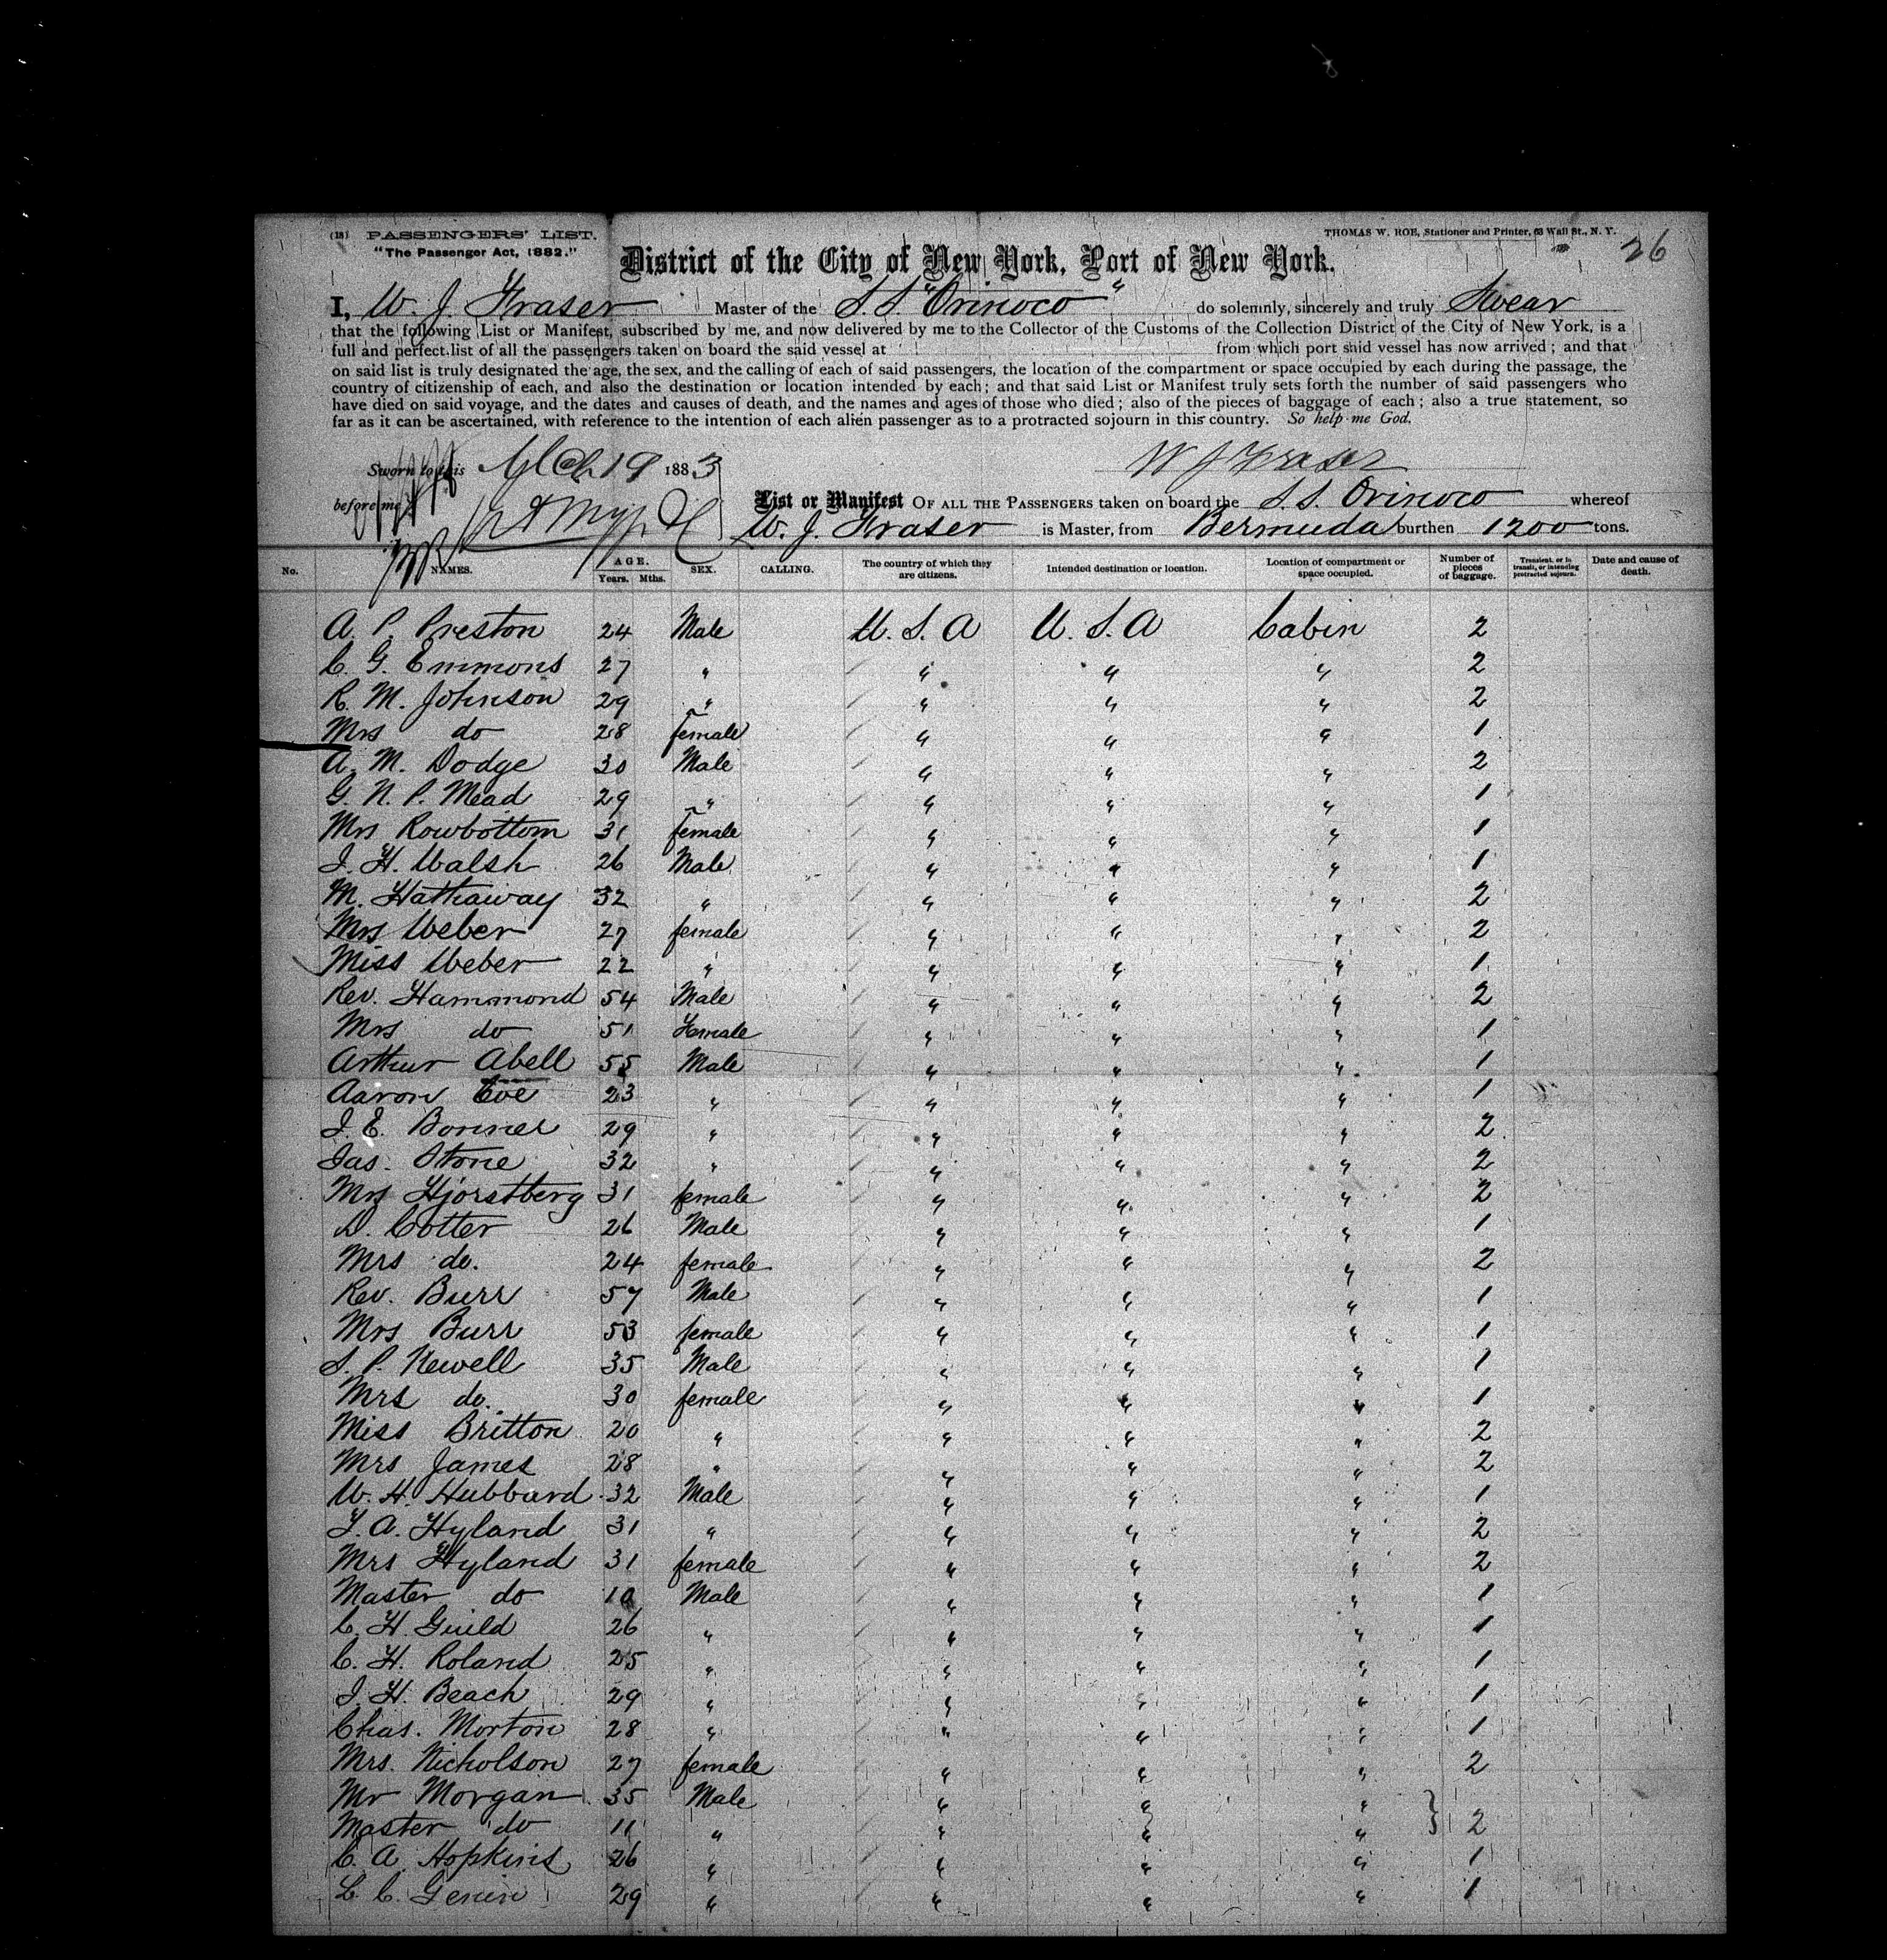 (18) PASSENGERS' LIST.
"The Passenger Act, 1882."
THOMAS W. ROE, Stationer and Printer, 63 Wall St., N. Y.
26
District of the City of New York, Port of New York.
I, W. J. Fraser Master of the S.S. "Orinoco" do solemnly, sincerely and truly Swear
that the following List or Manifest, subscribed by me, and now delivered by me to the Collector of the Customs of the Collection District of the City of New York, is a
full and perfect list of all the passengers taken on board the said vessel at from which port said vessel has now arrived; and that
on said list is truly designated the age, the sex, and the calling of each of said passengers, the location of the compartment or space occupied by each during the passage, the
country of citizenship of each, and also the destination or location intended by each; and that said List or Manifest truly sets forth the number of said passengers who
have died on said voyage, and the dates and causes of death, and the names and ages of those who died; also of the pieces of baggage of each; also a true statement, so
far as it can be ascertained, with reference to the intention of each alien passenger as to a protracted sojourn in this country. So help me God.
Sworn to this Mch 19 1883
W J Fraser
before me
List or Manifest OF ALL THE PASSENGERS taken on board the S.S. Orinoco whereof
W. J. Fraser is Master, from Bermuda burthen 1200 tons.
No. NAMES. AGE. Years. Mths. SEX. CALLING. The country of which they are citizens. Intended destination or location. Location of compartment or space occupied. Number of pieces of baggage. Transient, or in transit, or intending protracted sojourn. Date and cause of death.
A. P. Preston 24 Male U.S.A U.S.A Cabin 2
C. G. Emmons 27 " " " " 2
R. M. Johnson 29 " " " " 2
Mrs do 28 female " " " 1
A. M. Dodge 30 Male " " " 2
G. N. P. Mead 29 " " " " 1
Mrs Rowbottom 31 female " " " 1
J. H. Walsh 26 Male " " " 1
M. Hathaway 32 " " " " 2
Mrs Weber 27 female " " " 2
Miss Weber 22 " " " " 1
Rev. Hammond 54 Male " " " 2
Mrs do 51 Female " " " 1
Arthur Abell 55 Male " " " 1
Aaron 23 " " " " 1
J. E. Bonner 29 " " " " 2
Jas. Stone 32 " " " " 2
Mrs Hjorstberg 31 female " " " 2
D. Cotter 26 Male " " " 1
Mrs do. 24 female " " " 2
Rev. Burr 57 Male " " " 1
Mrs Burr 53 female " " " 1
S. P. Newell 35 Male " " " 1
Mrs do. 30 female " " " 1
Miss Britton 20 " " " " 2
Mrs James 28 " " " " 2
W. H. Hubbard 32 Male " " " 1
T. A. Hyland 31 " " " " 2
Mrs Hyland 31 female " " " 2
Master do 10 Male " " " 1
C. H. Guild 26 " " " " 1
C. H. Roland 25 " " " " 1
J. H. Beach 29 " " " " 1
Chas. Morton 28 " " " " 1
Mrs. Nicholson 27 female " " " 2
Mr Morgan 35 Male " " "
Master do 11 " " " " 2
C. A. Hopkins 26 " " " " 1
L. C. Genin 29 " " " " 1